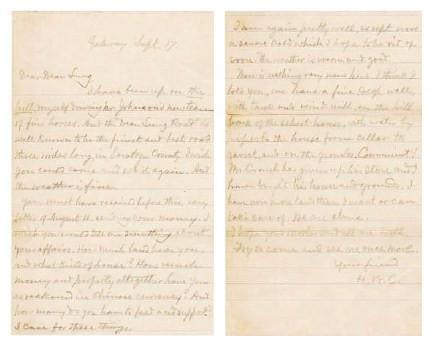 Galway Sept. 17
Dear Dean Lung
I have been up on the
hill myself driving for Johnson's new team
of five horses. And the Dean Lung Road is
well known to be the finest and best road
three miles long, in Saratoga County. I wish
you could come and see it again. And
the weather is fine.
You must have received before this my
letter of August 11. and my money. I
wish you would tell me something about
your affairs. How much land have you
and what kind of house? How much
money and property altogether have you
as reckoned in Chinese currency? And
how many do you have to feed and support?
I care for these things.
I am again pretty well, except now
a severe cold which I hope to be rid of
soon. The weather is warm and good.
There is nothing very new here. I think I
told you, we have a fine well,
with tank and wind mill, on the hill
back of the school house, with water by
pipe to the house from cellar to
garret, and on the grounds. Convenient!
Mr Crouch has given up his store and I
have bought his house and grounds. I
have now more land than I want or can
take care of. We are alone.
Try to come and see me once more.
Your friend
H. W. C.